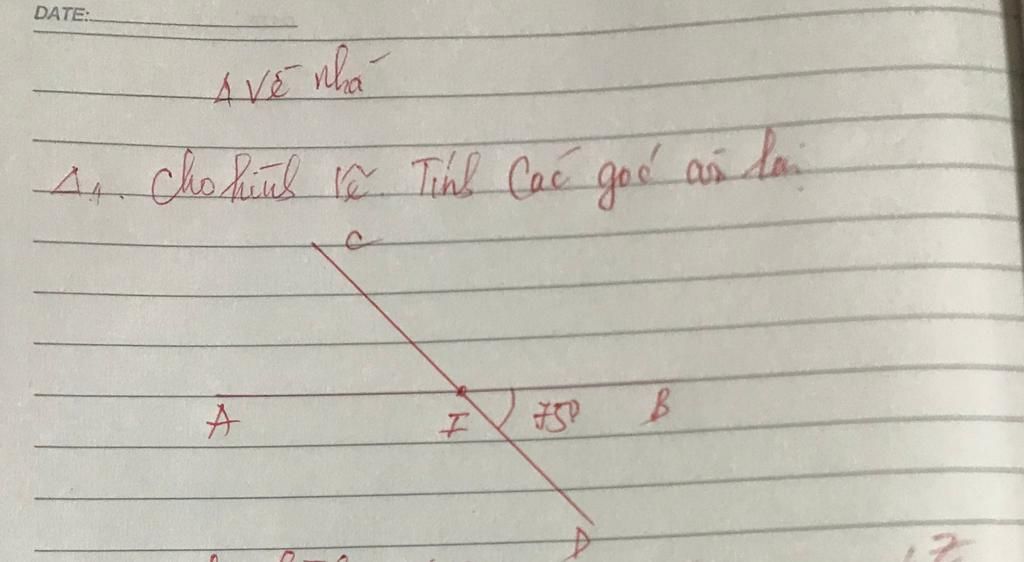 DATE:
Δ Về nhà
Δ1. Cho hình vẽ Tính Các goć còn lại
C
A I 75° B
D